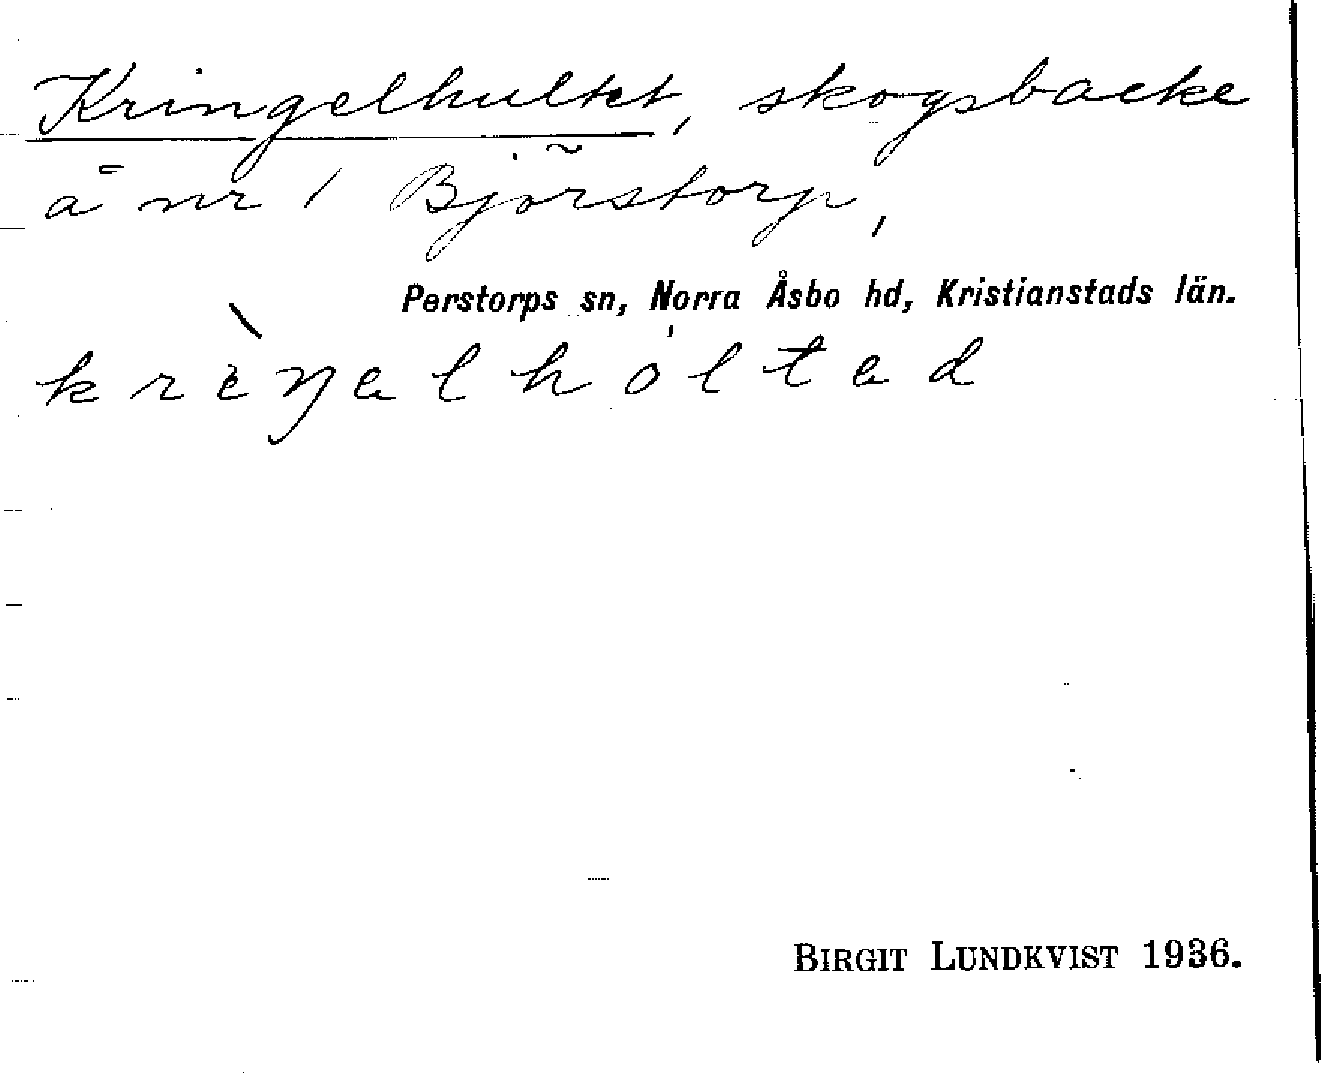 Kringelhultet, skogsbacke
å nr 1 Björstorp,
Perstorps sn, Norra Åsbo hd, Kristianstads län.
krèŋəlhóltəd
BIRGIT LUNDKVIST 1936.